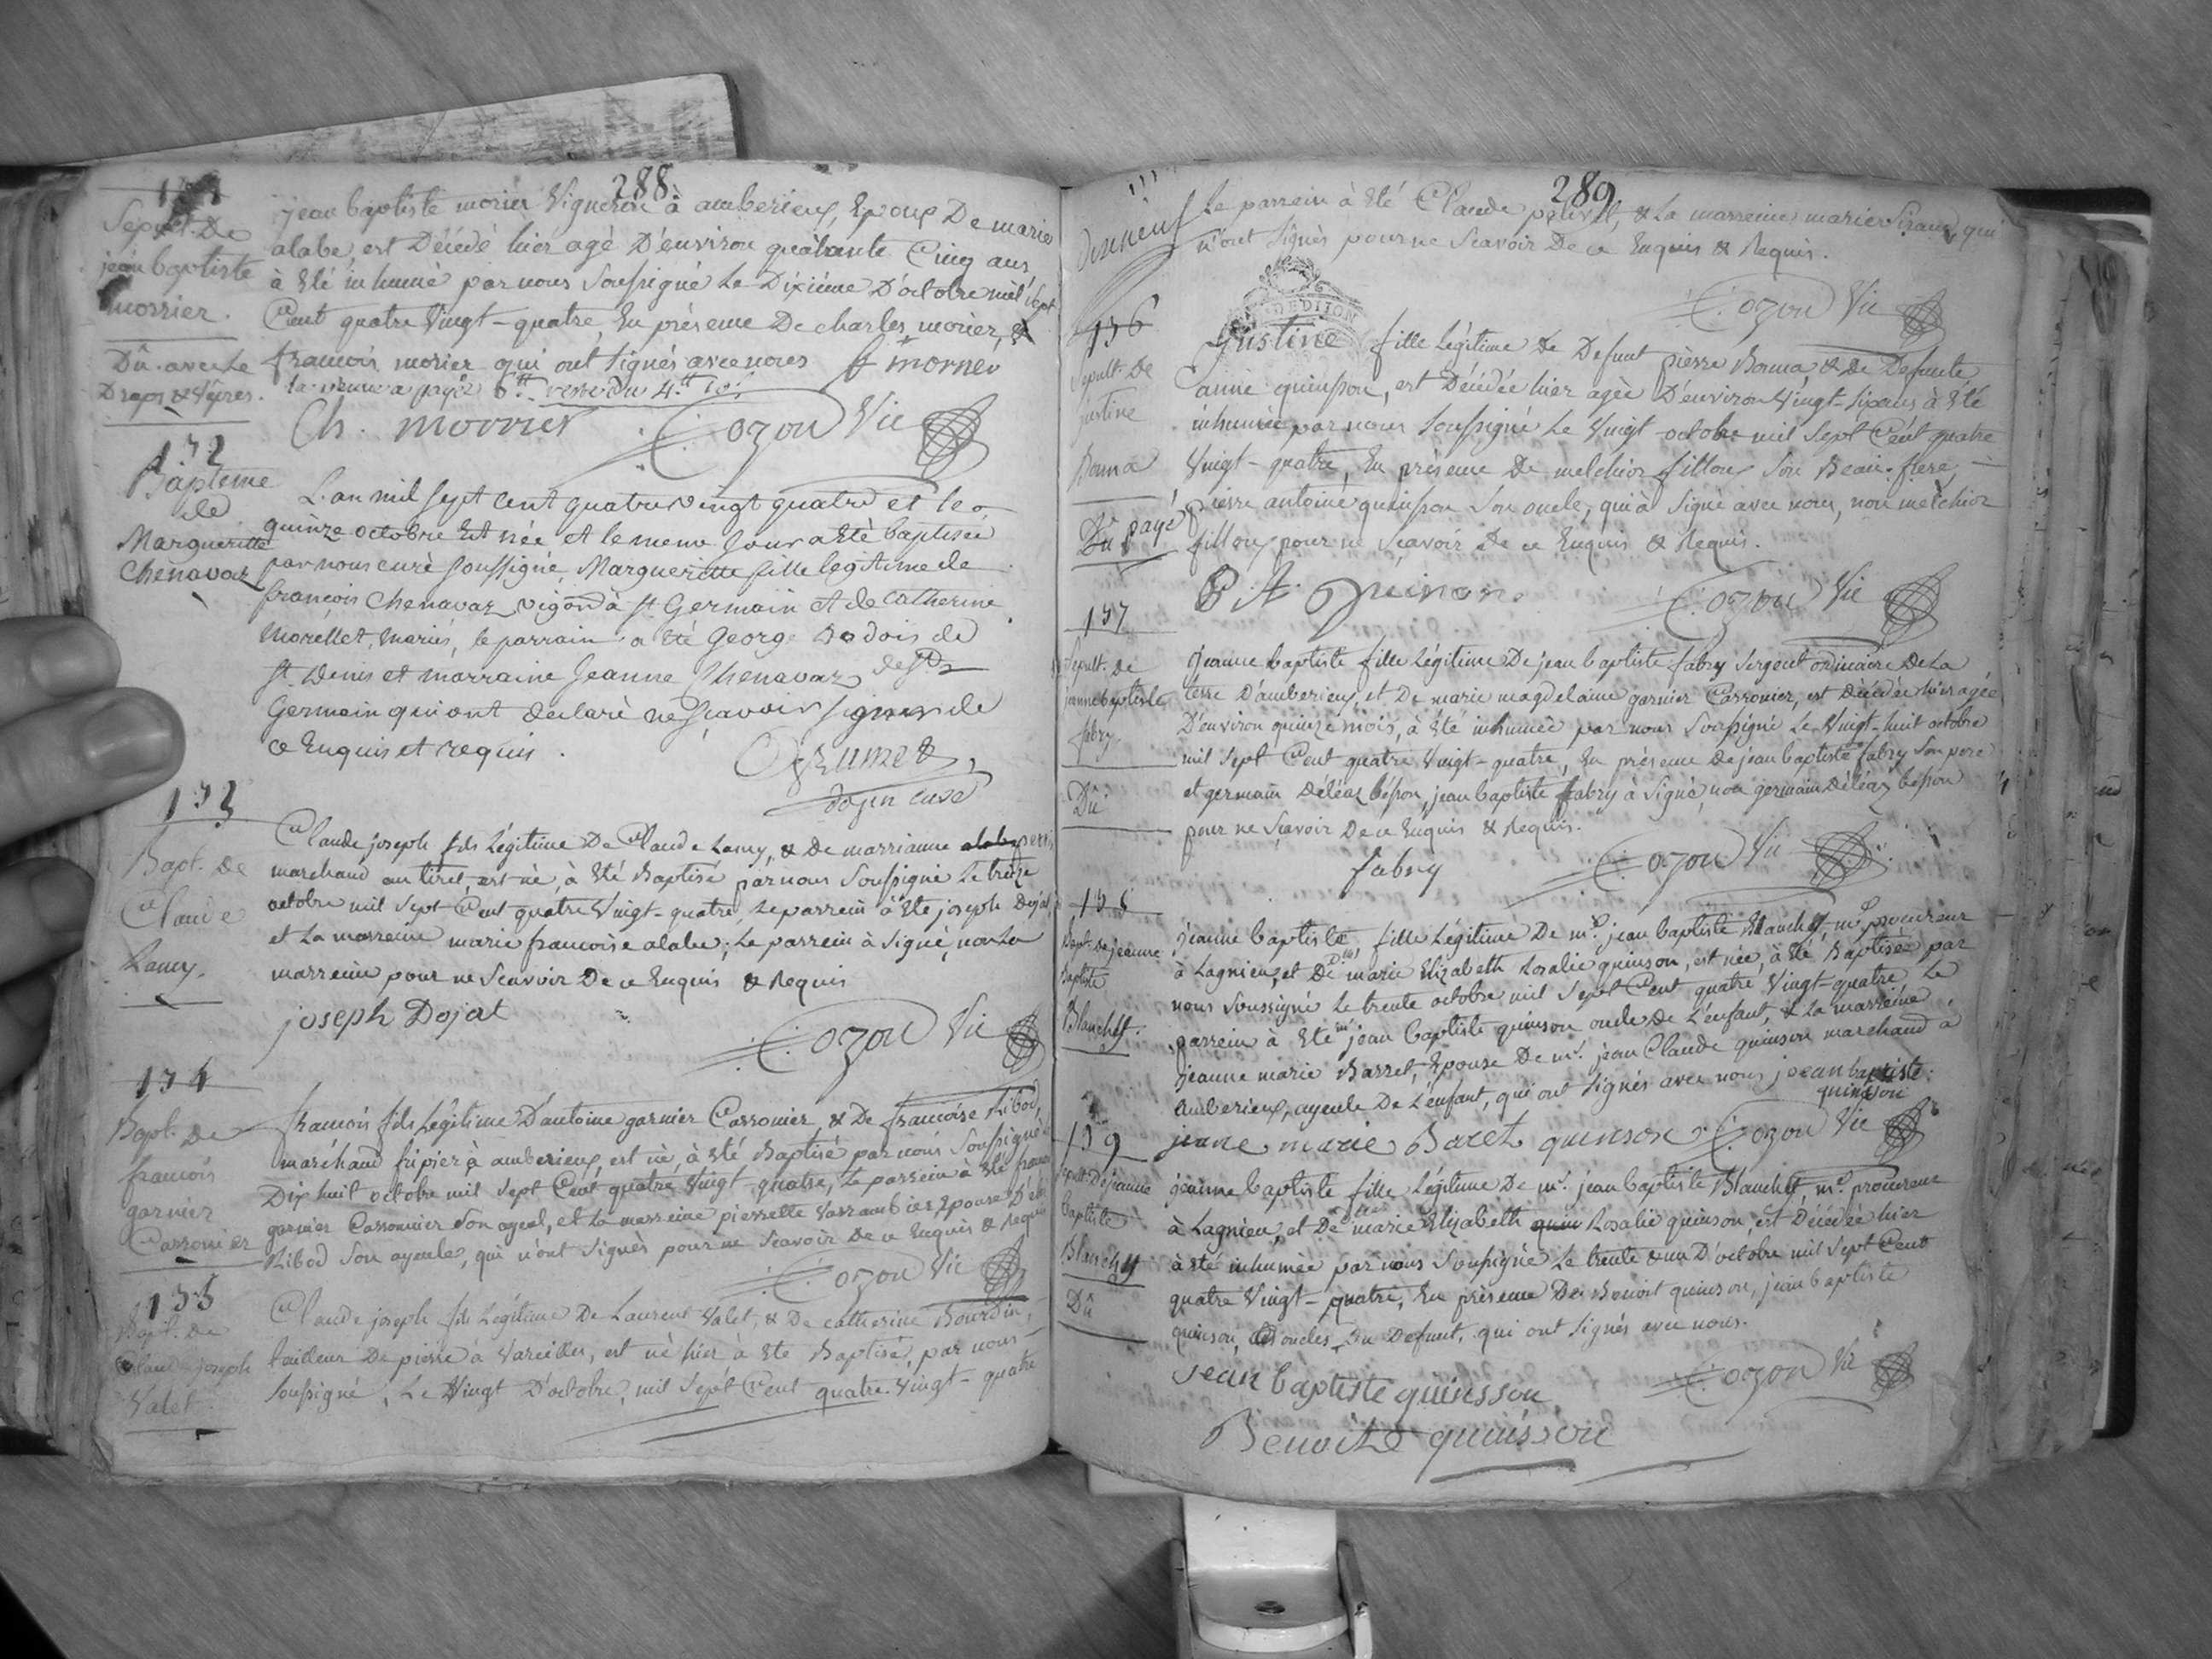 288
Sepult. De
jean baptiste
morrier.
Dû. avec Le
Draps & Vêpres.
jean baptiste morier Vigneron à amberieux, Epoux De marie
alabe, est Décédé hier agé D'environ quarante Cinq ans,
à Eté inhumé par nous soussigné Le Dixième D'octobre mil sept
Cent quatre Vingt-quatre, En présence De charles morier, &
francois morier qui ont signés avec nous f morrier
la veuve a payé 6tt
Ch. morrier Cozon Vic
152
Baptême
de
Margueritte
Chenavaz
L'an mil sept cent quatrevingt quatre et le
quinze octobre Est née et le meme jour a Eté baptisée
par nous curé soussigné, Margueritte fille legitime de
françois Chenavaz vigon à st Germain et de Catherine
Morellet, mariés, le parrain a Eté George Dodois de
st Denis et marraine Jeanne Chenavaz de st
Germain qui ont declaré ne sçavoir signer de
ce Enquis et requis.
Grumet
153
Bapt. De
Claude
Lamy.
Claude joseph fils Légitime De Claude Lamy, & De marrianne
marchand au tiret, est né, à Eté Baptisé par nous soussigné Le treize
octobre mil sept Cent quatre Vingt-quatre, Le parrein à Eté joseph Dojat,
et La marreine marie francoise alabe; Le parrein à signé, non La
marreine pour ne sçavoir De ce Enquis & Requis
joseph Dojat
Cozon Vic
154
Bapt. De
francois
garnier
Carronier
francois fils Légitime D'antoine garnier Carronier, & De francoise Ribod,
marchand fripier à amberieux, est né, à Eté Baptisé par nous soussigné
Dix huit octobre mil sept Cent quatre Vingt-quatre, Le parrein à Eté
garnier Carronnier son ayeul, et La marreine pierrette Epouse
Ribod son ayeule, qui n'ont signés pour ne sçavoir De ce Enquis & Requis
Cozon Vic
155
Bapt. De
Claude joseph
Valet
Claude joseph fils Légitime De Laurent Valet, & De Catherine Bourdin,
tailleur De pierre à Vareilles, est né hier à Eté Baptisé, par nous
soussigné, Le Vingt D'octobre, mil sept Cent quatre Vingt-quatre
289
Le parrein à Eté Claude & La marreine marie Siraud, qui
n'ont signés pour ne sçavoir De ce Enquis & Requis.
Cozon Vic
156
Sepult. De
justine
Bonna
Dû payé
justine fille Légitime De Defunt pierre Bonna, & De Defunte
anne quinson, est Décédée hier agée D'environ Vingt-six ans à Eté
inhumée par nous soussigné Le Vingt octobre mil sept Cent quatre
Vingt-quatre, En présence De melchior fillion son Beau-frere,
pierre antoine quinson son oncle, qui à signé avec nous, non melchior
fillion pour ne sçavoir De ce Enquis & Requis.
P. A. Quinson.
Cozon Vic
157
Sepult. de
jeanne baptiste
fabry.
Dû
jeanne baptiste fille Légitime De jean baptiste fabry sergent ordinaire De La
terre D'amberieux, et De marie magdelaine garnier Carronier, est Décédée hier agée
D'environ quinze mois, à Eté inhumée par nous soussigné Le Vingt-huit octobre
mil sept Cent quatre Vingt-quatre, En présence De jean baptiste fabry son pere
et germain Déléaz bésson, jean baptiste fabry à signé, non germain Déléaz bésson
pour ne sçavoir De ce Enquis & Requis.
fabry Cozon Vic
158
Bapt. De jeanne
Baptiste
Blanchet.
jeanne baptiste, fille Légitime De mr. jean baptiste Blanchet, me. procureur
à Lagnieu, et De Dlle marie Elizabeth Rosalie quinson, est née, à Eté Baptisée par
nous soussigné Le trente octobre mil sept Cent quatre Vingt-quatre Le
parrein à Eté mr jean baptiste quinson oncle De L'enfant, & La marreine,
jeanne marie Barret, Epouse De mr. jean Claude quinson marchand à
amberieux, ayeule De L'enfant, qui ont signés avec nous jean baptiste
quinson
jeane marie Baret quinson Cozon Vic
159
Sepult. De jeanne
baptiste
Blanchet
Dû
jeanne baptiste fille Légitime De mr. jean baptiste Blanchet, me. procureur
à Lagnieu, et De Dlle marie Elizabeth Rosalie quinson, est Décédée hier
à été inhumée par nous soussigné Le trente & un D'octobre mil sept Cent
quatre Vingt-quatre, En présence De Benoit quinson, jean baptiste
quinson, oncles Du Defunt, qui ont signés avec nous.
jean baptiste quinsson Cozon Vic
Benoit quinsson